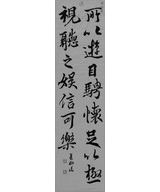 可以遊目騁懷足以極
視聽之娛信可樂